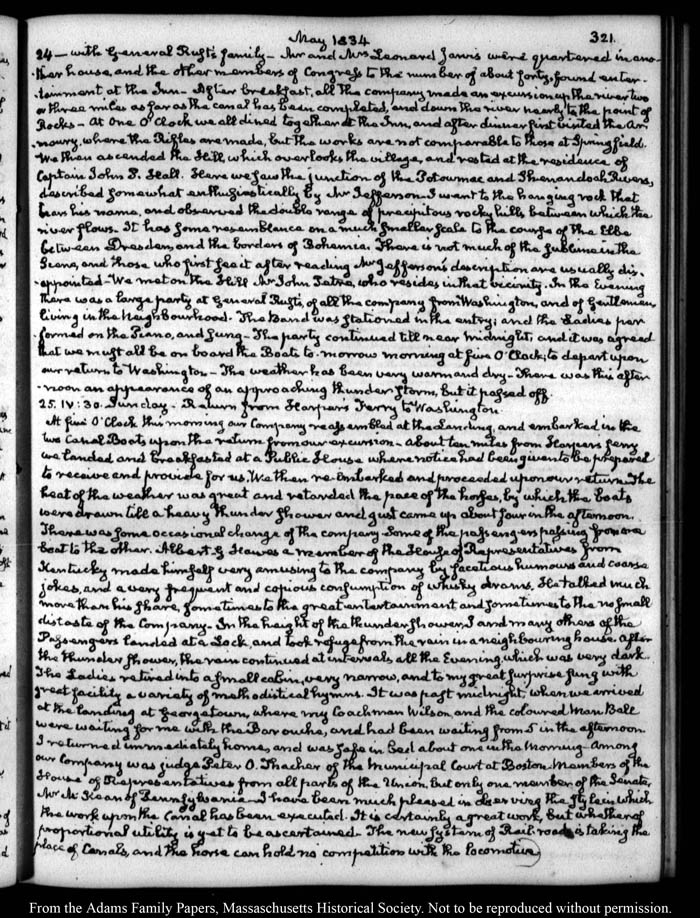 May 1834
321.
24 — with General Rust's family — Mr and Mrs Leonard Jarvis were quartered in ano-
ther house, and the other members of Congress to the number of about forty, found enter-
tainment at the Inn — After breakfast, all the company made an excursion up the river two
or three miles as far as the canal has been completed, and down the river nearly to the point of
Rocks — At One O'Clock we all dined together at the Inn, and after dinner first visited the Ar-
moury, where the Rifles are made, but the works are not comparable to those at Springfield.
We then ascended the Hill, which overlooks the village, and rested at the residence of
Captain John P. Hall. Here we saw the junction of the Potowmac and Shenandoah Rivers,
described somewhat enthusiastically by Mr Jefferson — I went to the hanging rock that
bears his name, and observed the double range of precipitous rocky hills between which the
river flows. It has some resemblance on a much smaller scale to the course of the Elbe
between Dresden, and the borders of Bohemia. There is not much of the sublime in the
Scene, and those who first see it after reading Mr Jefferson's description are usually dis-
appointed — We met on the Hill Mr John Tatre, who resides in that vicinity. In the Evening
there was a large party at General Rust's, of all the company from Washington, and of Gentlemen
living in the Neighbourhood. The Band was stationed in the entry; and the Ladies per
formed on the Piano, and sung — The party continued till near midnight, and it was agreed
that we must all be on board the Boats to-morrow morning at five O'Clock, to depart upon
our return to Washington — The weather has been very warm and dry — There was this after-
noon an appearance of an approaching thunder storm, but it passed off.
25. IV:30. Sunday. Return from Harper's Ferry to Washington.
At five O'Clock this morning our Company reassembled at the Landing, and embarked in the
two Canal Boats upon the return from our excursion — About ten miles from Harpers ferry
we landed and breakfasted at a Public House where notice had been given to be prepared
to receive and provide for us. We then re-embarked and proceeded upon our return. The
heat of the weather was great and retarded the pace of the horses, by which the boats
were drawn till a heavy thunder shower and gust came up about four in the afternoon.
There was some occasional change of the company — Some of the passengers passing from one
boat to the other. Albert G Hawes a member of the House of Representatives from
Kentucky made himself very amusing to the company by facetious humours and coarse
jokes, and a very frequent and copious consumption of whisky drams. He talked much
more than his share, sometimes to the great entertainment and sometimes to the no small
distaste of the Company — In the height of the thunder shower, I and many others of the
Passengers landed at a Lock, and took refuge from the rain in a neighbouring house. After
the thunder shower, the rain continued at intervals all the Evening which was very dark.
The Ladies retired into a small cabin, very narrow, and to my great surprise sung with
great facility a variety of methodistical hymns. It was past midnight, when we arrived
at the landing at Georgetown, where my Coachman Wilson, and the coloured Man Ball
were waiting for me with the Barouche, and had been waiting from 5 in the afternoon.
I returned immediately home, and was safe in bed about one in the Morning — Among
our Company was judge Peter O. Thacher of the Municipal Court at Boston. Members of the
House of Representatives from all parts of the Union, but only one member of the Senate,
Mr McKean of Pennsylvania — I have been much pleased in observing the style in which
the work upon the Canal has been executed. It is certainly a great work, but whether of
proportional utility is yet to be ascertained — The new System of Rail roads is taking the
place of Canals, and the horse can hold no competition with the locomotive
From the Adams Family Papers, Massachusetts Historical Society. Not to be reproduced without permission.